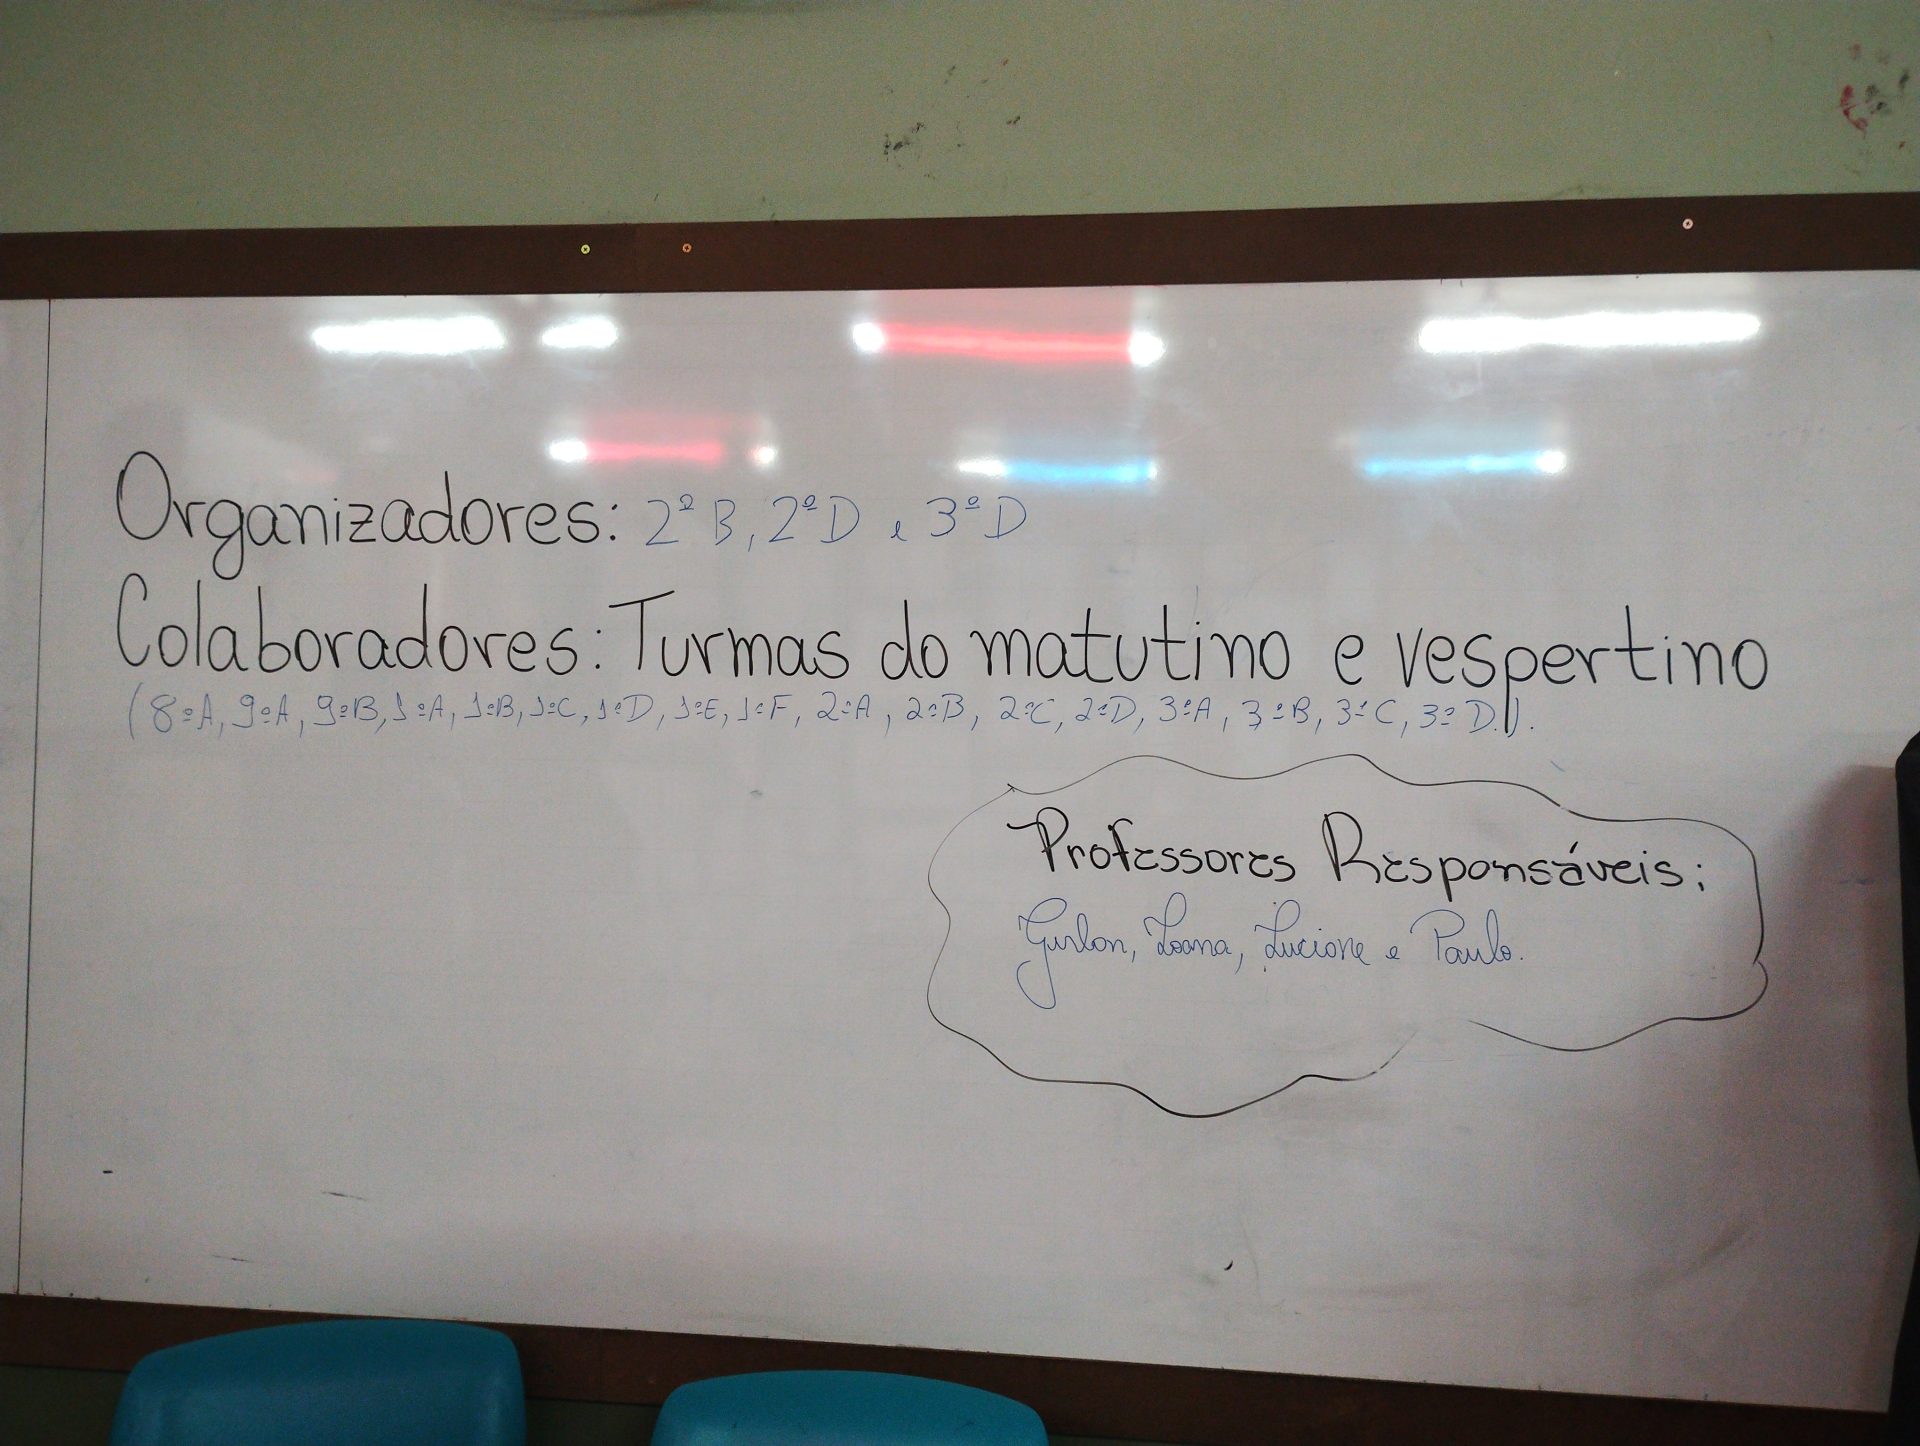 Organizadores: 2º B, 2º D e 3º D
Colaboradores: Turmas do matutino e vespertino
(8º A, 9º A, 9º B, 1º A, 1º B, 1º C, 1º D, 1º E, 1º F, 2º A, 2º B, 2º C, 2º D, 3º A, 3º B, 3º C, 3º D.).
Professores Responsáveis:
Loana, Luciane e Paulo.